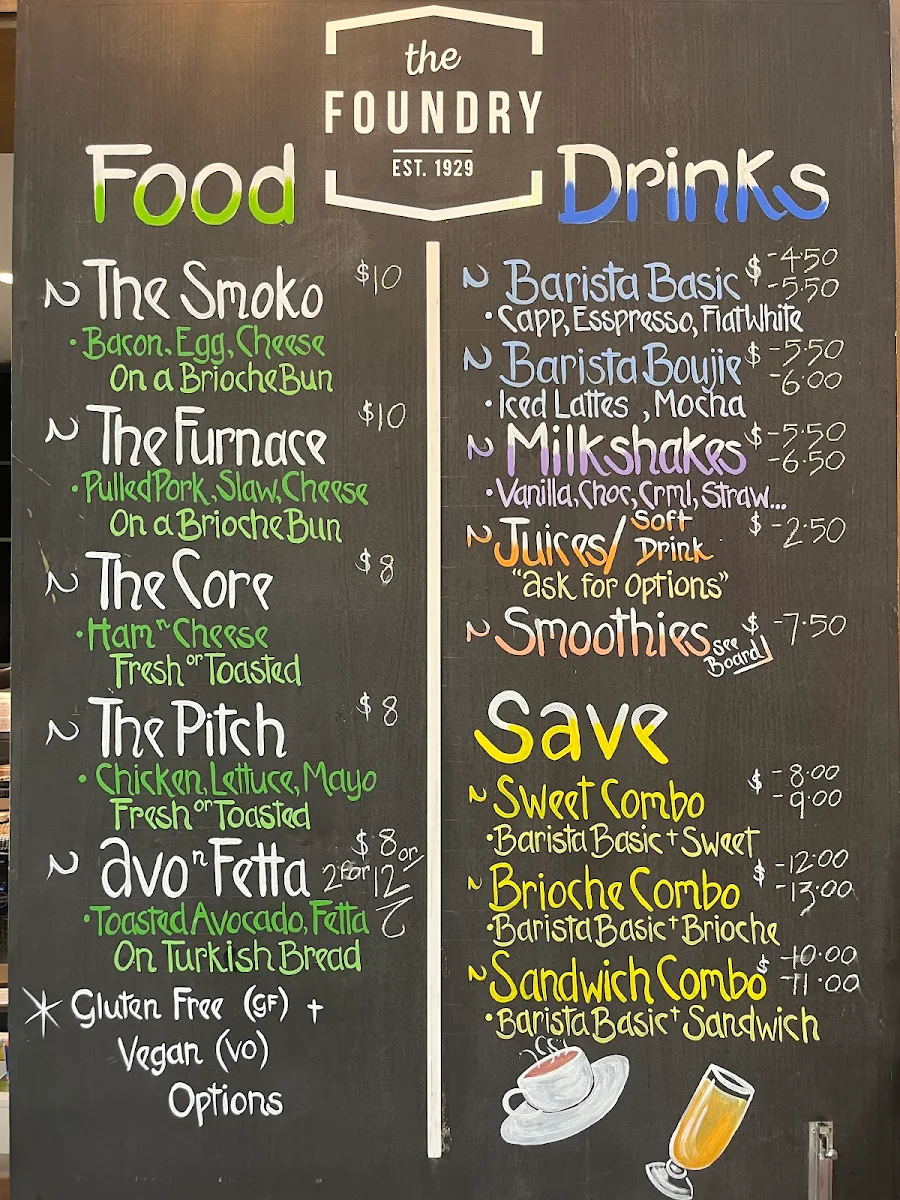 the
FOUNDRY
EST. 1929
Food
~ The Smoko $10
• Bacon, Egg, Cheese
On a Brioche Bun
~ The Furnace $10
• Pulled Pork, Slaw, Cheese
On a Brioche Bun
~ The Core $8
• Ham n Cheese
Fresh or Toasted
~ The Pitch $8
• Chicken, Lettuce, Mayo
Fresh or Toasted
~ avo n Fetta $8 or
2 for 12
• Toasted Avocado, Fetta
On Turkish Bread
* Gluten Free (GF) +
Vegan (VO)
Options
Drinks
~ Barista Basic $ -4.50
-5.50
• Capp, Esspresso, Flat White
~ Barista Boujie $ -5.50
-6.00
• Iced Lattes , Mocha
~ Milkshakes $ -5.50
-6.50
• Vanilla, Choc, Crml, Straw...
~ Juices/ Soft Drink $ -2.50
"ask for options"
~ Smoothies $ -7.50
See Board
Save
~ Sweet Combo $ -8.00
-9.00
• Barista Basic + Sweet
~ Brioche Combo $ -12.00
-13.00
• Barista Basic + Brioche
~ Sandwich Combo $ -10.00
-11.00
• Barista Basic + Sandwich